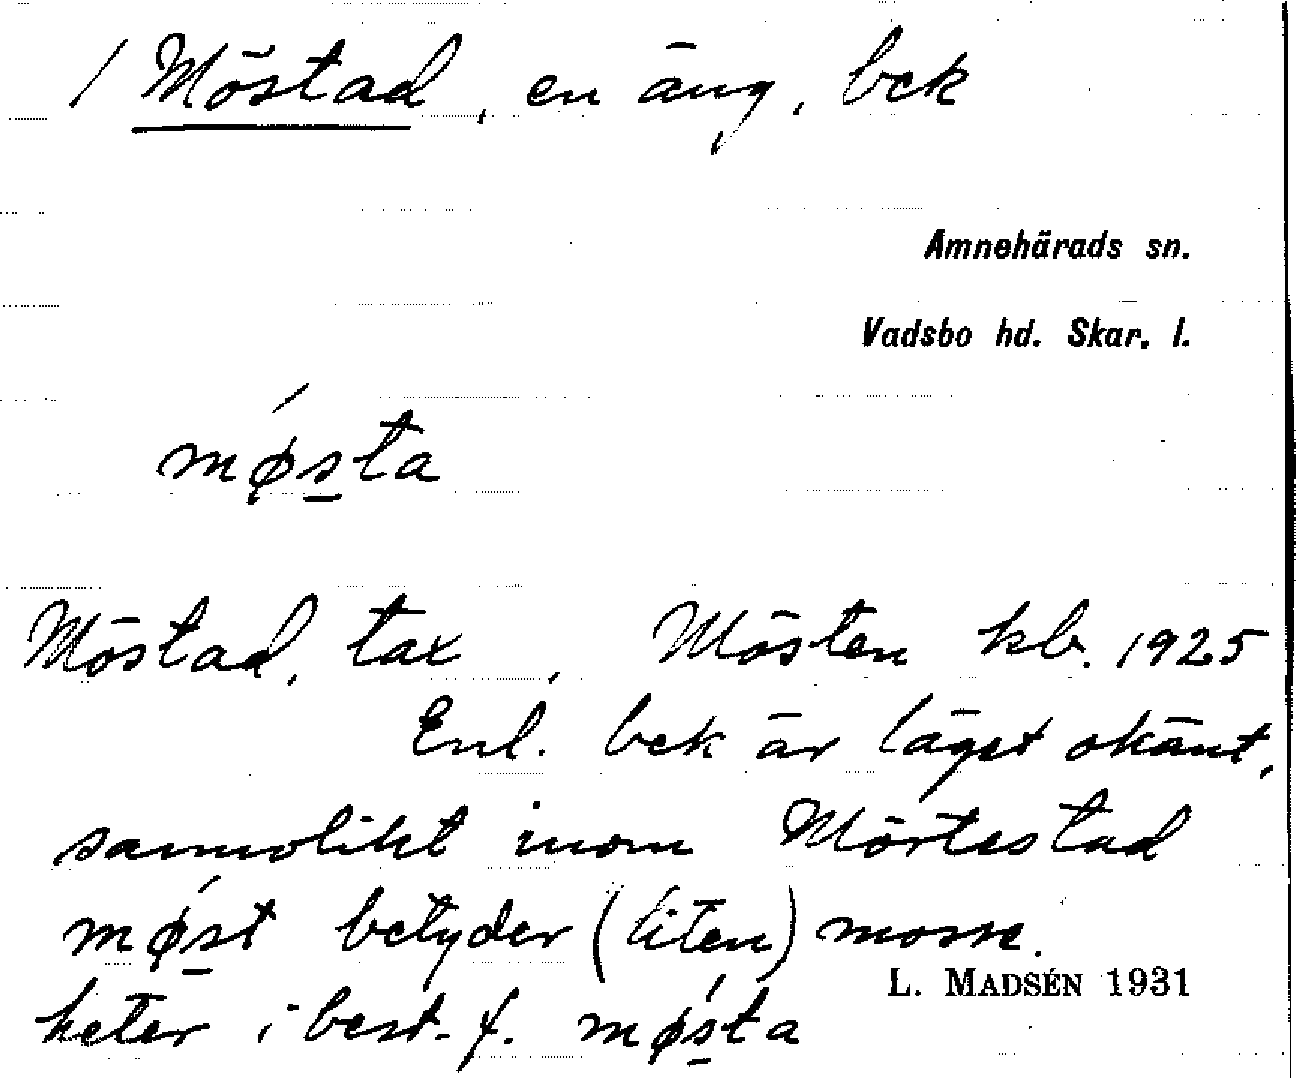 / Möstad, en äng, bek
Amnehärads sn.
Vadsbo hd. Skar. l.
mø´s̲ta
Möstad, tax, Mösten kb. 1925
Enl. bek är läget okänt,
sannolikt inom Mörtestad
mø´s̲t betyder (liten) mosse.
L. MADSÉN 1931
heter i best. f. mø´s̲ta